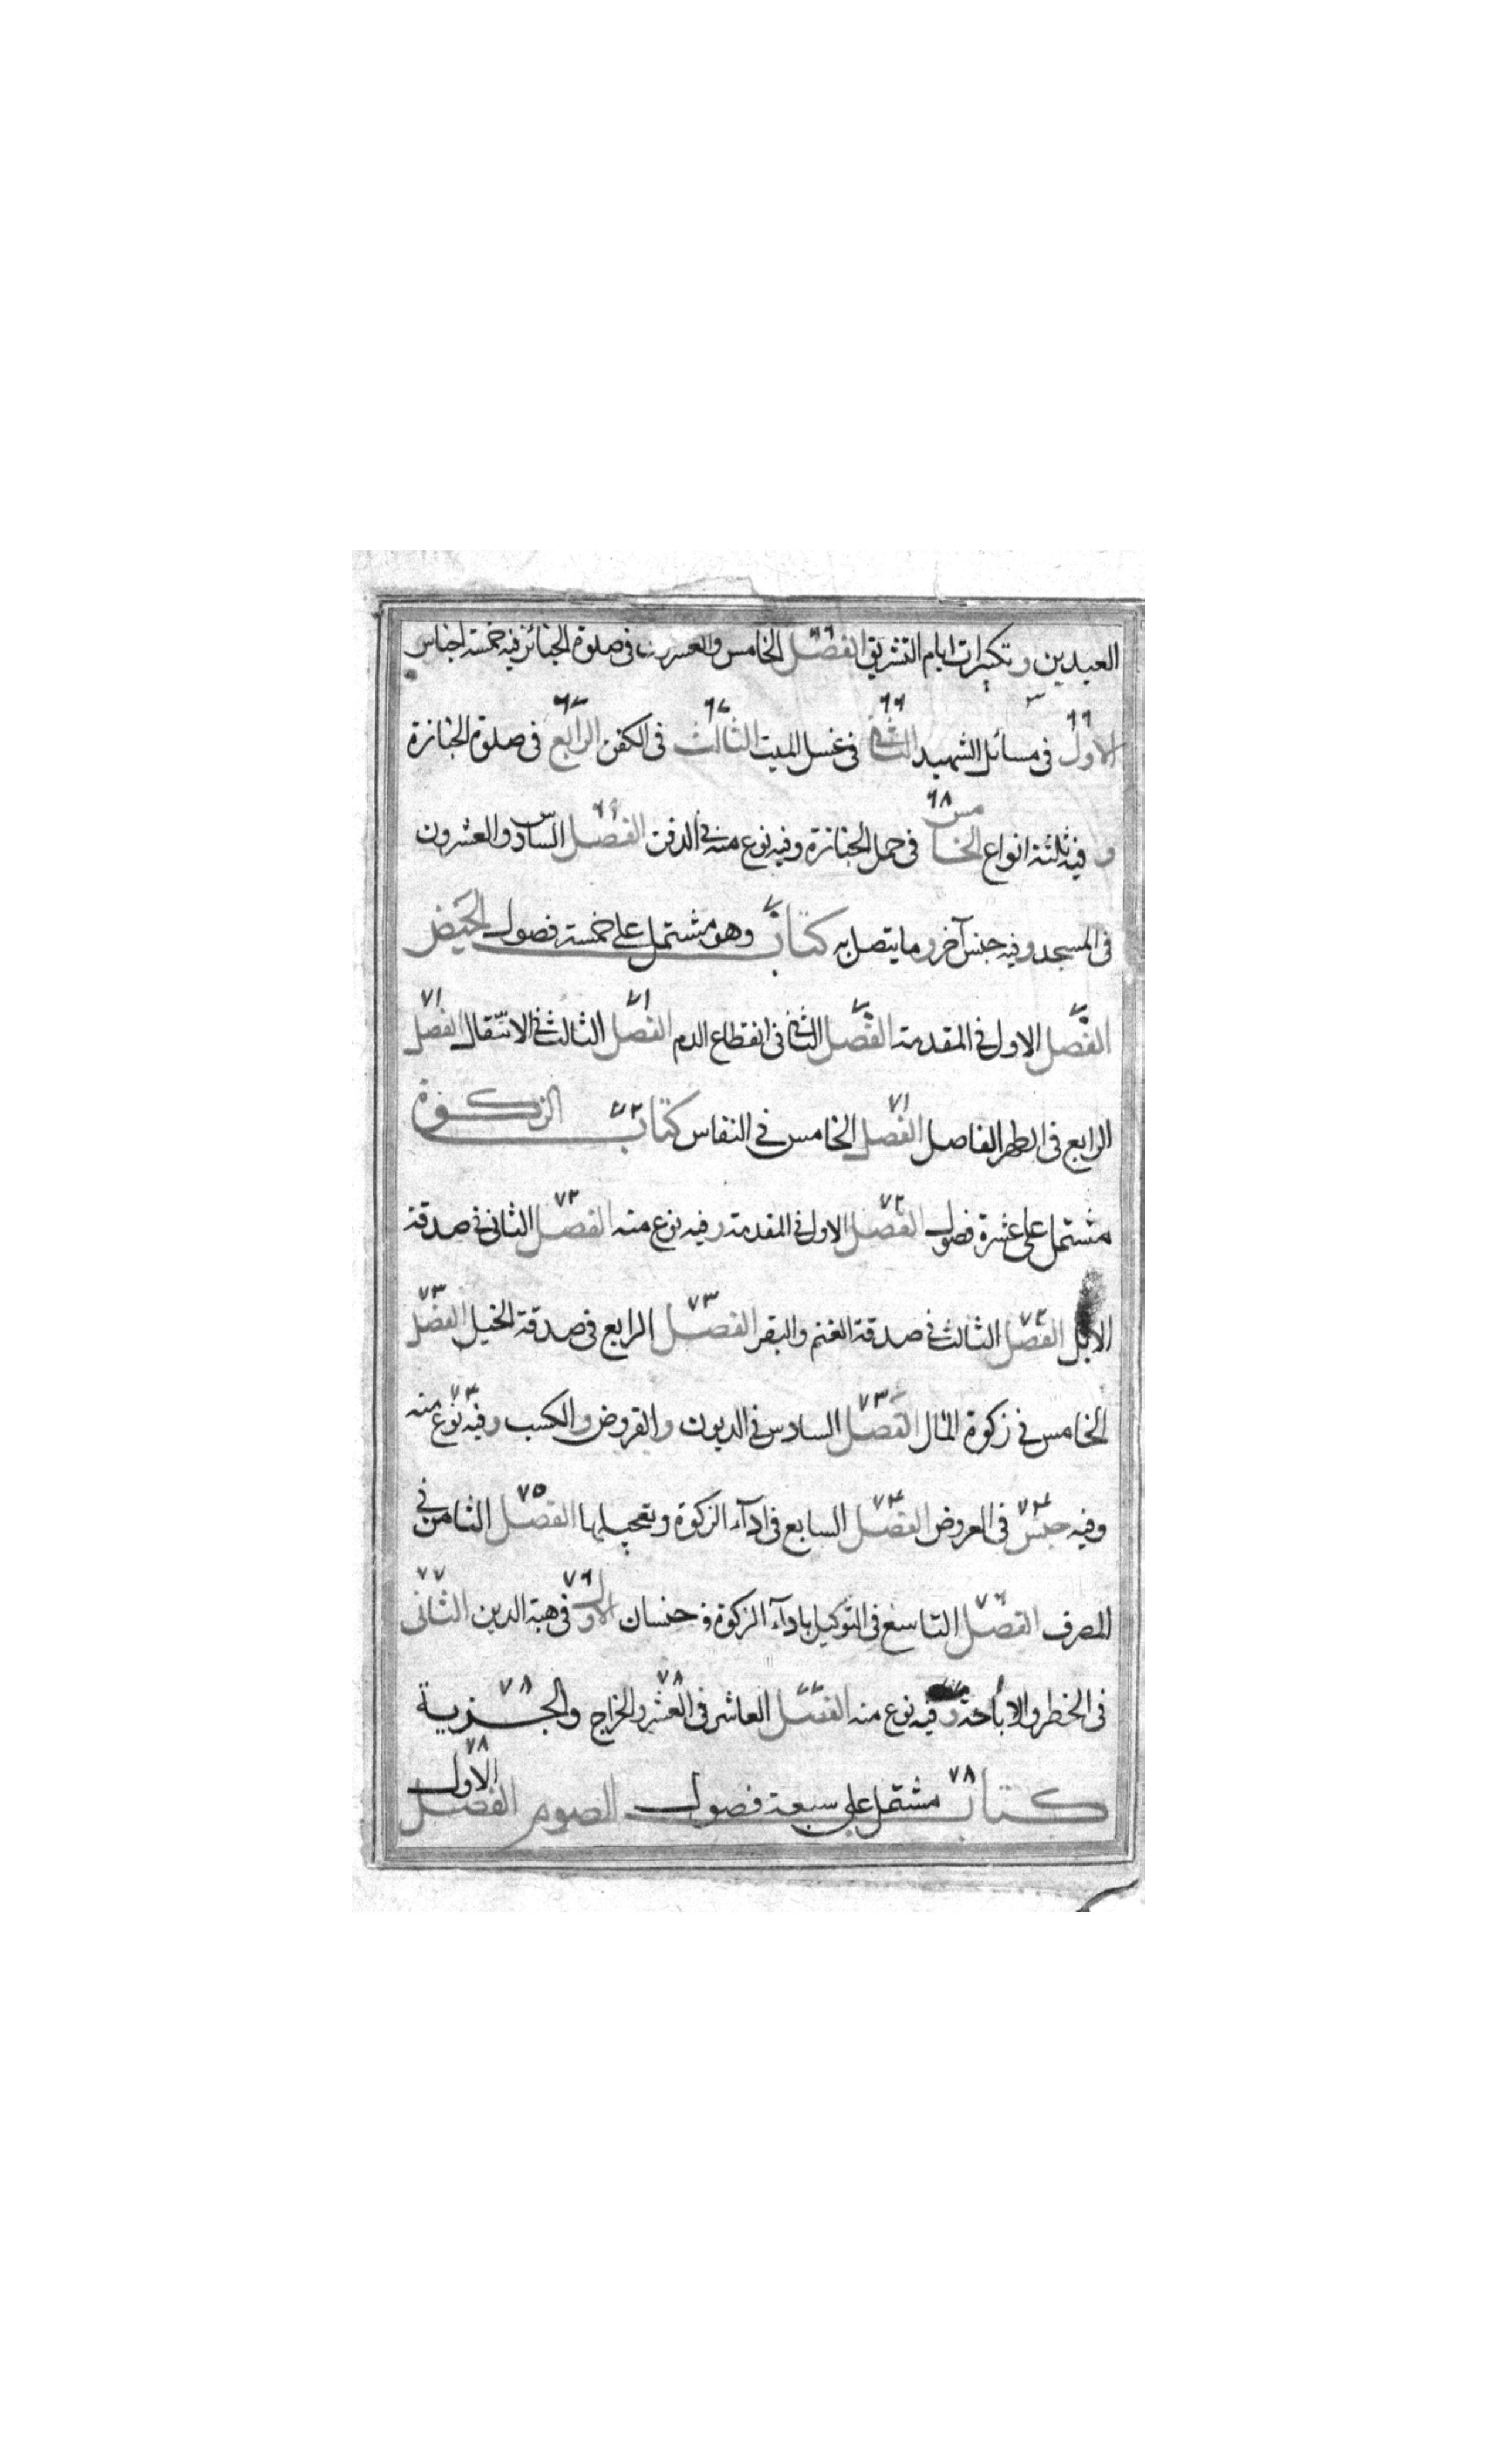 العيدين وتكبيرات ايام التشريق الفصل الخامس والعشرون فى صلوة الجنائز فيه خمسة اجناس
الاول فى مسائل الشهيد الثانى فى غسل الميت الثالث فى الكفن الرابع فى صلوة الجنازة
وفيه ثلثة انواع الخامس فى حمل الجنازة وفيه نوع منه فى الدفن الفصل السادس والعشرون
فى المسجد وفيه جنس آخر وما يتصل به كتاب الحيض وهو مشتمل على خمسة فصول
الفصل الاول فى المقدمة الفصل الثانى فى انقطاع الدم الفصل الثالث فى الانتقال الفصل
الرابع فى الطهر الفاصل الفصل الخامس فى النفاس كتاب الزكوة
مشتمل على عشرة فصول الفصل الاول فى المقدمة وفيه نوع منه الفصل الثانى فى صدقة
الابل الفصل الثالث فى صدقة الغنم والبقر الفصل الرابع فى صدقة الخيل الفصل
الخامس فى زكوة المال الفصل السادس فى الديون والقروض والكسب وفيه نوع منه
وفيه جنس فى العروض الفصل السابع فى ادآء الزكوة وتعجيلها الفصل الثامن فى
المصرف الفصل التاسع فى التوكيل بادآء الزكوة و جنسان الاول فى هبة الدين الثانى
فى الخطر والاباحة وفيه نوع منه الفصل العاشر فى العشر والخراج والجزية
كتاب الصوم مشتمل على سبعة فصول الفصل الاول